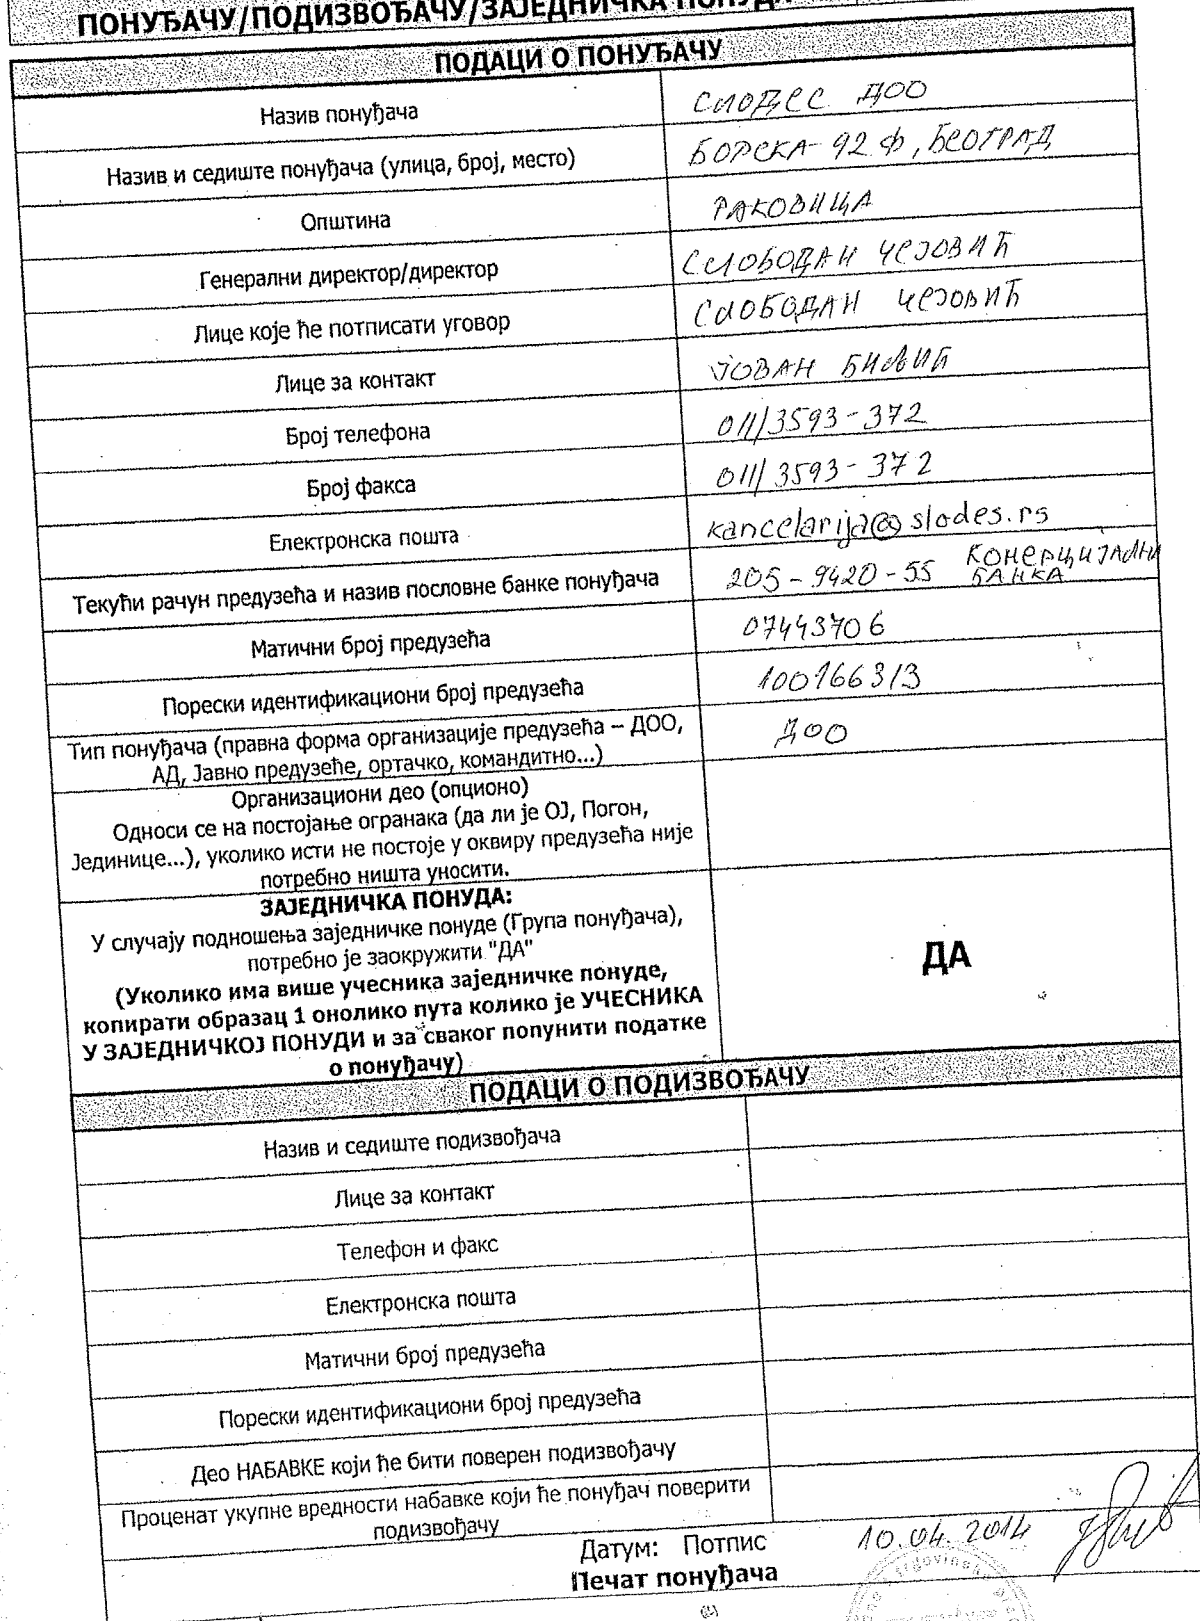 ПОНУЂАЧУ/ПОДИЗВОЂАЧУ/ЗАЈЕДНИЧКА
ПОДАЦИ О ПОНУЂАЧУ
Назив понуђача
СЛОДЕС ДОО
Назив и седиште понуђача (улица, број, место)
БОРСКА 92 Ф, БЕОГРАД
Општина
РАКОВИЦА
Генерални директор/директор
СЛОБОДАН ЧЕЈОВИЋ
Лице које ће потписати уговор
СЛОБОДАН ЧЕЈОВИЋ
Лице за контакт
ЈОВАН БИЉИЋ
Број телефона
011/3593-372
Број факса
011/3593-372
Електронска пошта
kancelarija@slodes.rs
Текући рачун предузећа и назив пословне банке понуђача
205-9420-55 КОМЕРЦИЈАЛНА
БАНКА
Матични број предузећа
07443706
Порески идентификациони број предузећа
100166313
Тип понуђача (правна форма организације предузећа – ДОО,
АД, Јавно предузеће, ортачко, командитно...)
ДОО
Организациони део (опционо)
Односи се на постојање огранака (да ли је ОЈ, Погон,
Јединице...), уколико исти не постоје у оквиру предузећа није
потребно ништа уносити.
ЗАЈЕДНИЧКА ПОНУДА:
У случају подношења заједничке понуде (Група понуђача),
потребно је заокружити "ДА"
(Уколико има више учесника заједничке понуде,
копирати образац 1 онолико пута колико је УЧЕСНИКА
У ЗАЈЕДНИЧКОЈ ПОНУДИ и за сваког попунити податке
о понуђачу)
ДА
ПОДАЦИ О ПОДИЗВОЂАЧУ
Назив и седиште подизвођача
Лице за контакт
Телефон и факс
Електронска пошта
Матични број предузећа
Порески идентификациони број предузећа
Део НАБАВКЕ који ће бити поверен подизвођачу
Проценат укупне вредности набавке који ће понуђач поверити
подизвођачу
Датум: Потпис
10.04.2014
Печат понуђача